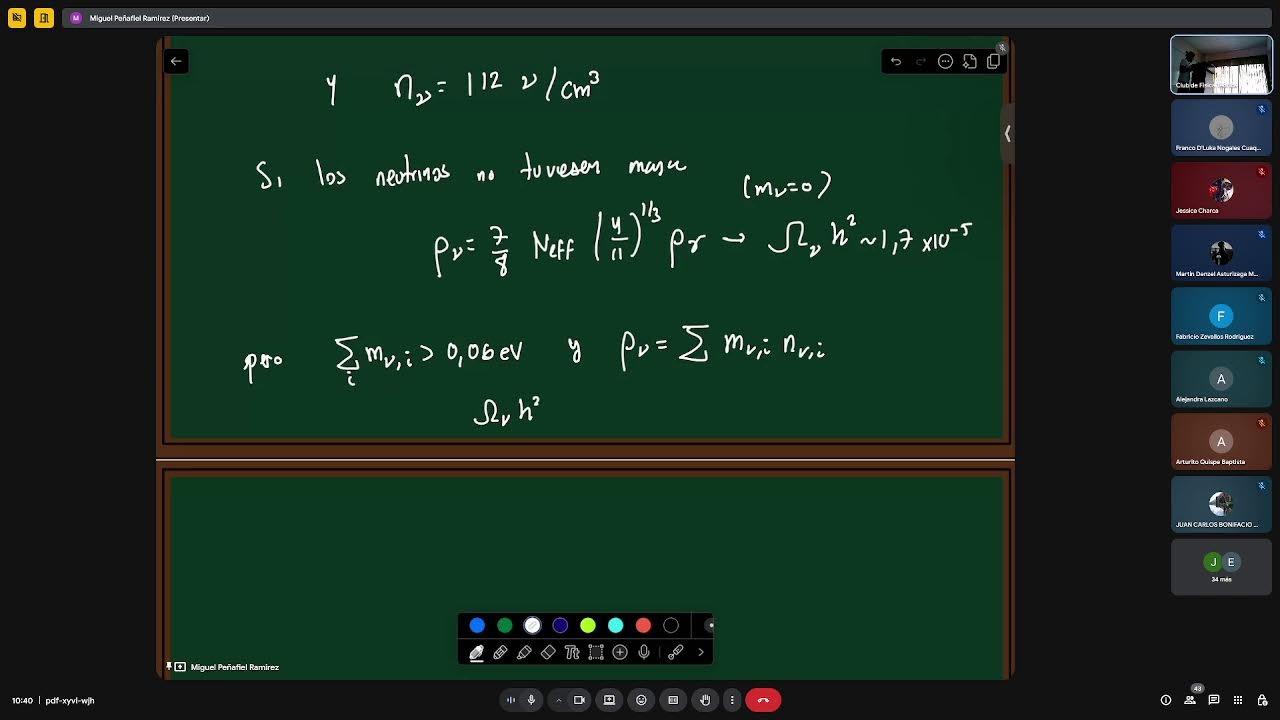 Miguel Peñafiel Ramirez (Presentar)
y nν = 112 ν/cm³
Si los neutrinos no tuviesen masa
(mν=0)
ρν = 7/8 Neff (4/11)^1/3 ργ → Ων h² ~ 1,7 ×10⁻⁵
pero ∑i mν,i > 0,06 eV y ρν = ∑ mν,i nν,i
Ων h²
Miguel Peñafiel Ramirez
Franco D'Luka Nogales Cuaq...
Jessica Charca
Martin Danzel Asturizaga M...
F
Fabricio Zevallos Rodriguez
A
Alejandra Lazcano
A
Arturito Quispe Baptista
JUAN CARLOS BONIFACIO ...
J E
34 más
10:40 | pdf-xyvi-wjh
43